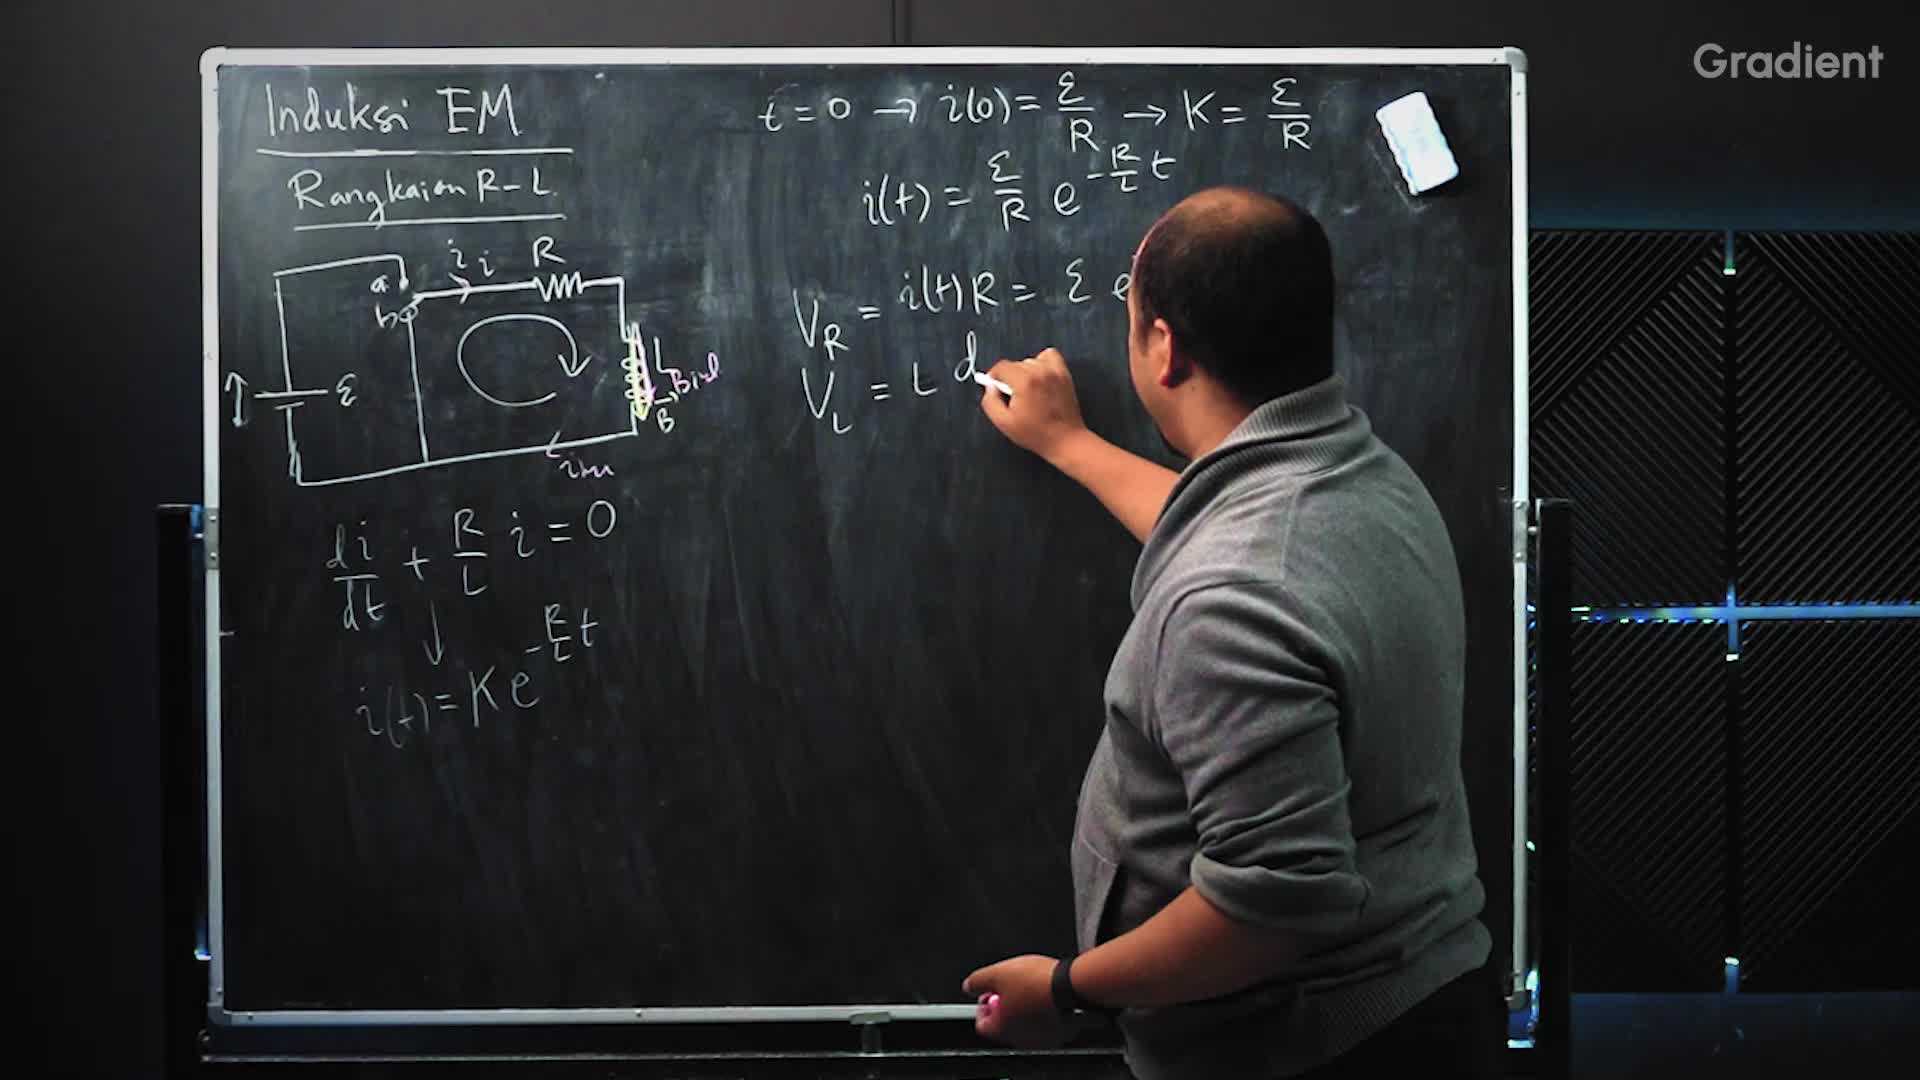 Gradient
Induksi EM
Rangkaian R-L
i i R
a
b
ε
L
Bind
B
di/dt + R/L i = 0
↓
i(t) = K e^{-R/L t}
t = 0 → i(0) = ε/R → K = ε/R
i(t) = ε/R e^{-R/L t}
V_R = i(t)R = ε e
V_L = L d